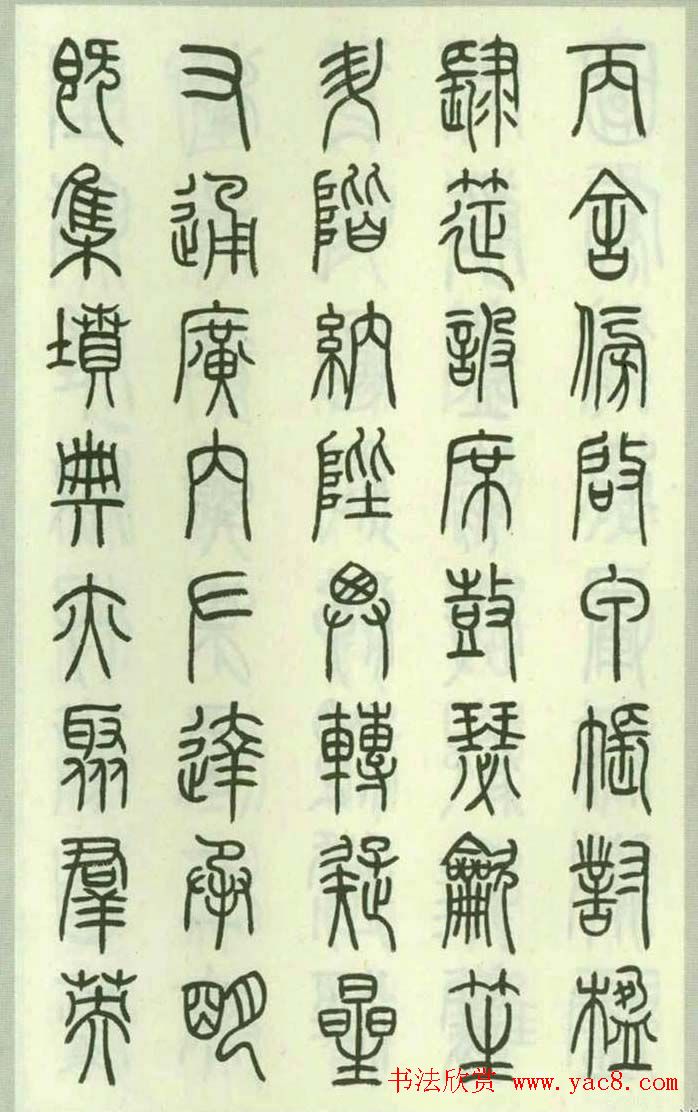 丙舍傍啟甲帳對楹
肆筵設席鼓瑟龡笙
升階納陛弁轉疑星
右通廣內左達承明
既集墳典亦聚羣英
书法欣赏 www.yac8.com